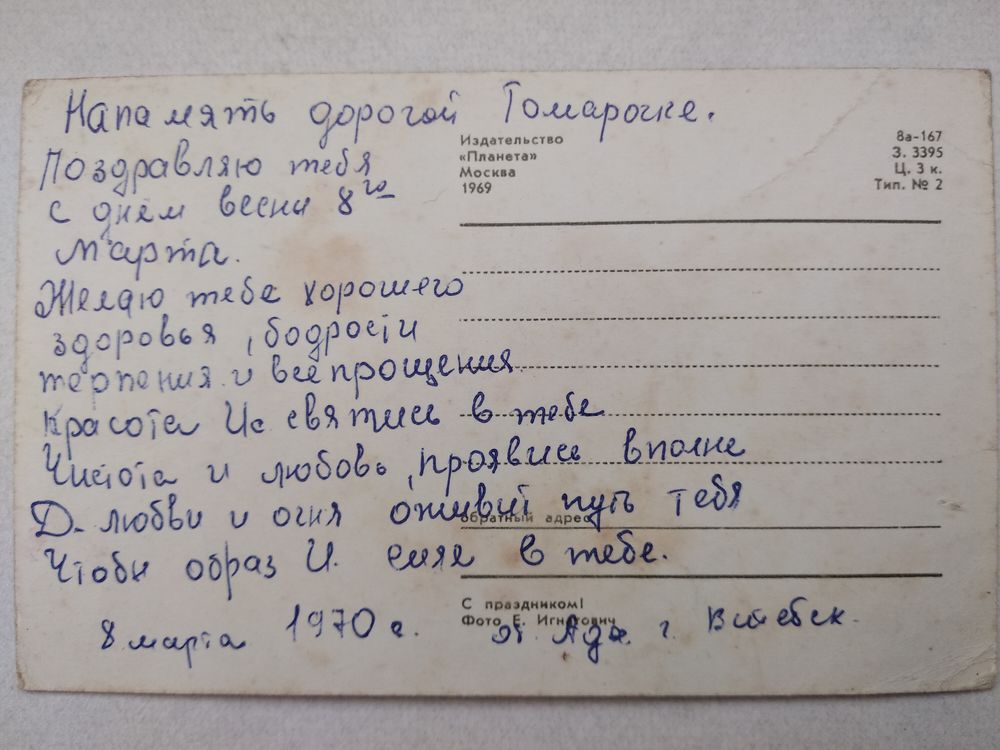 Напамять дорогой Томарочке.
Поздравляю тебя
с днем весни 8го
марта.
Желаю тебе хорошего
здоровья, бодрости
терпения и всепрощения
Красота Ис святись в тебе
Чистота и любовь, проявись вполне
Д- любви и огня оживит путь тебя
Чтоби образ И. сиял в тебе.
8 марта 1970 г. от Ада. г. Витебск.
Издательство
«Планета»
Москва
1969
8а-167
З. 3395
Ц. 3 к.
Тип. № 2
обратный адрес
С праздником!
Фото Е. Игнатович